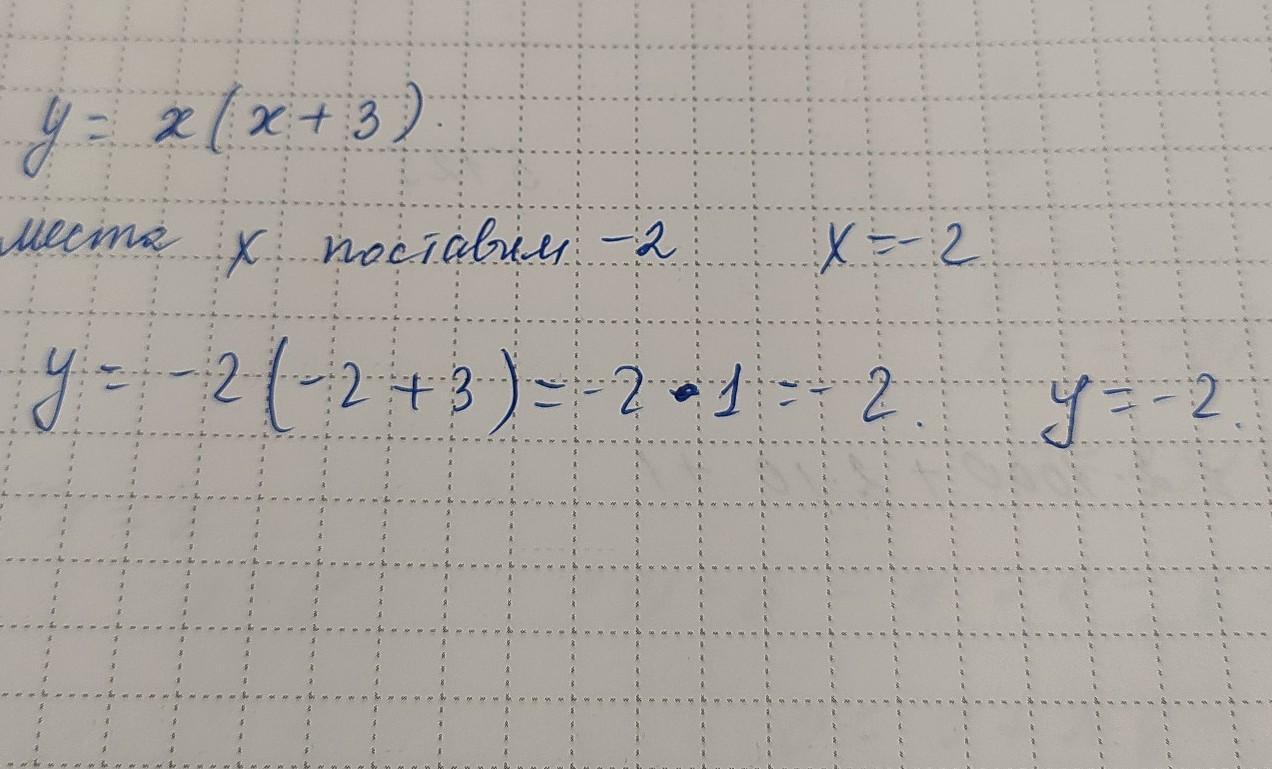 y = x(x+3).
места x поставим -2 x=-2
y = -2(-2+3)=-2•1=-2. y=-2.